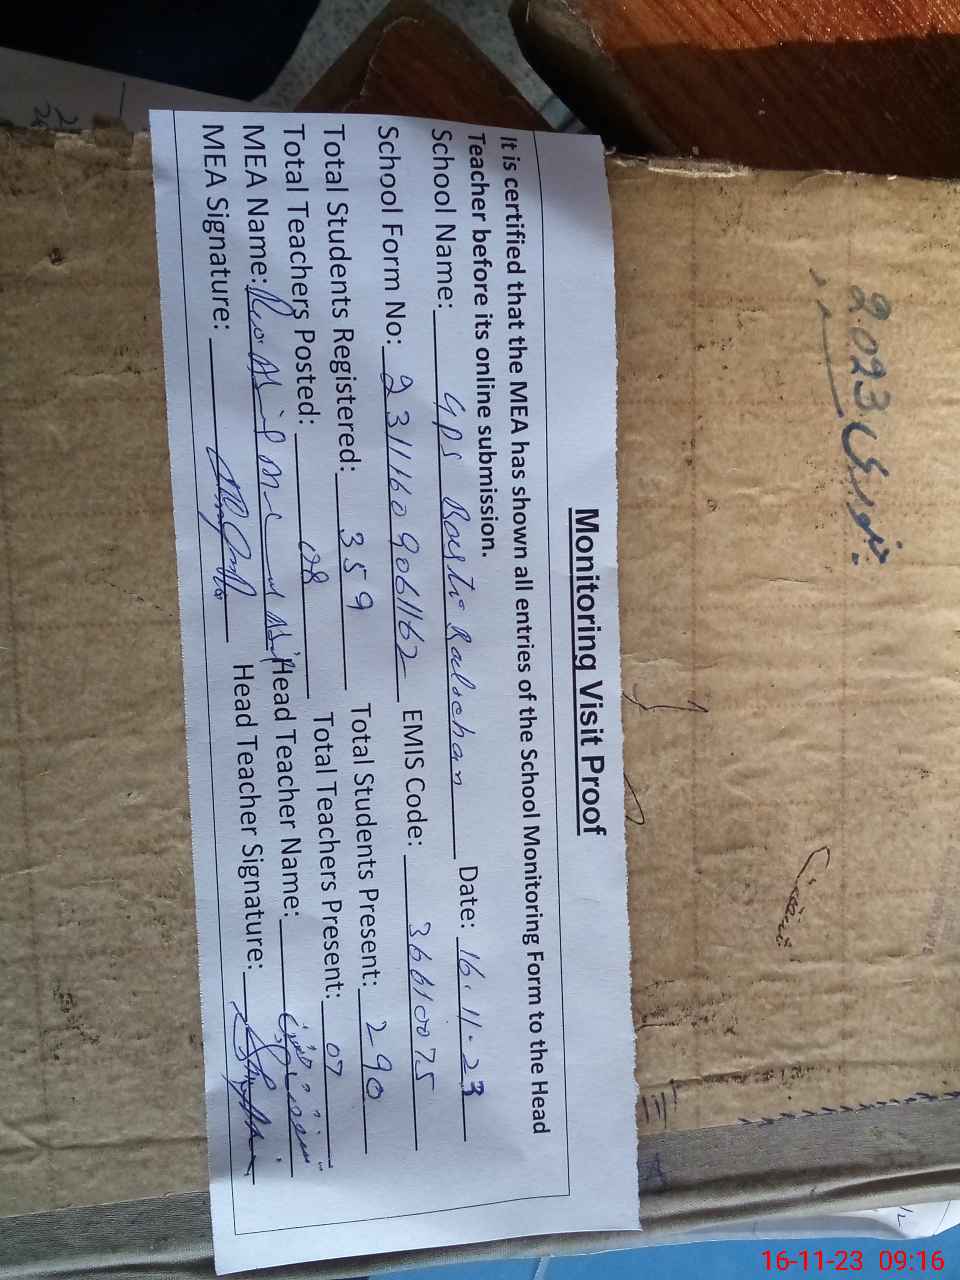 Monitoring Visit Proof
It is certified that the MEA has shown all entries of the School Monitoring Form to the Head
Teacher before its online submission.
School Name: GPS Basti Date: 16.11.23
School Form No: 23111609061162 EMIS Code: 36610075
Total Students Registered: 359 Total Students Present: 290
Total Teachers Posted: 08 Total Teachers Present: 07
MEA Name: Head Teacher Name:
MEA Signature: Head Teacher Signature:
جنوری 2023
16-11-23 09:16